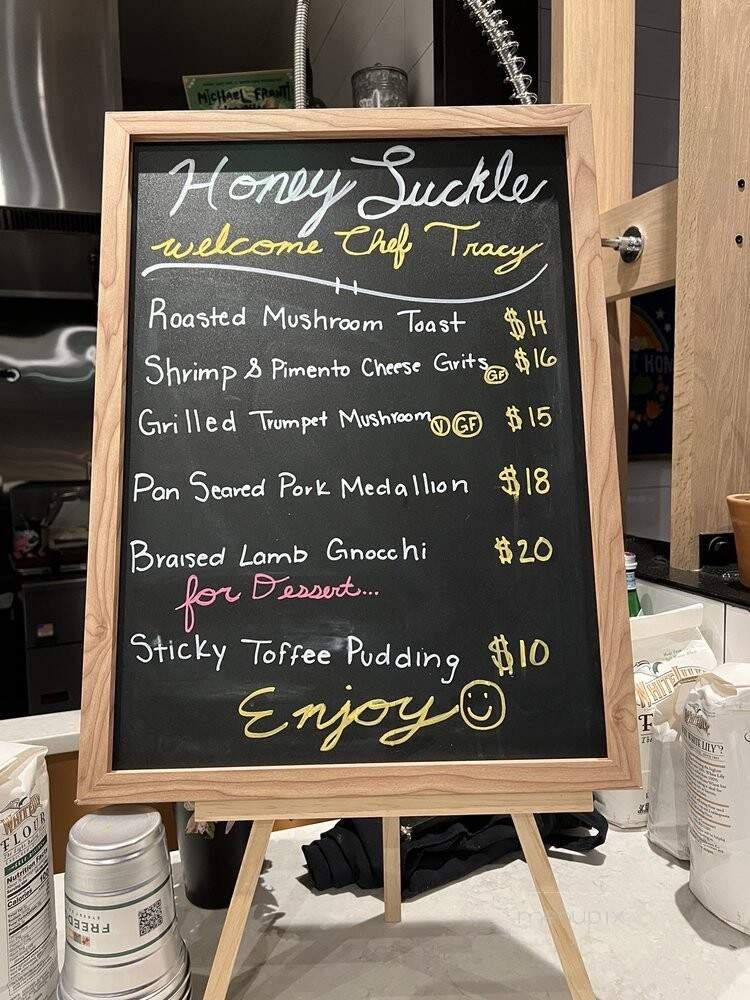 MICHAEL FRANTI
Honey Suckle
welcome Chef Tracy
Roasted Mushroom Toast $14
Shrimp & Pimento Cheese Grits GF $16
Grilled Trumpet Mushroom V GF $15
Pan Seared Pork Medallion $18
Braised Lamb Gnocchi $20
for Dessert...
Sticky Toffee Pudding $10
Enjoy
WHITE LILY
WHITE LILY"?
FLOUR
Nutrition Facts
Calories
FREED
menupix